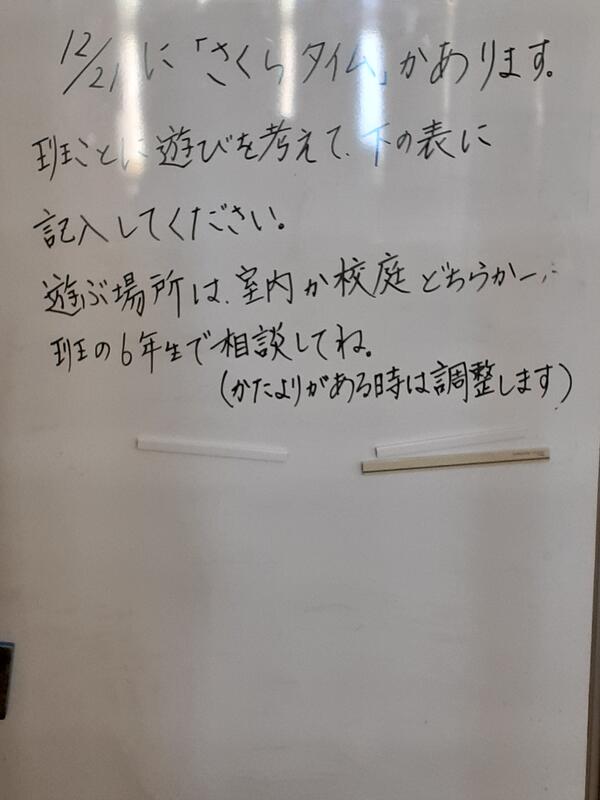 12/21に「さくらタイム」があります。
班ごとに遊びを考えて、下の表に
記入してください。
遊ぶ場所は、室内か校庭どちらか一
班の6年生で相談してね。
(かたよりがある時は調整します)